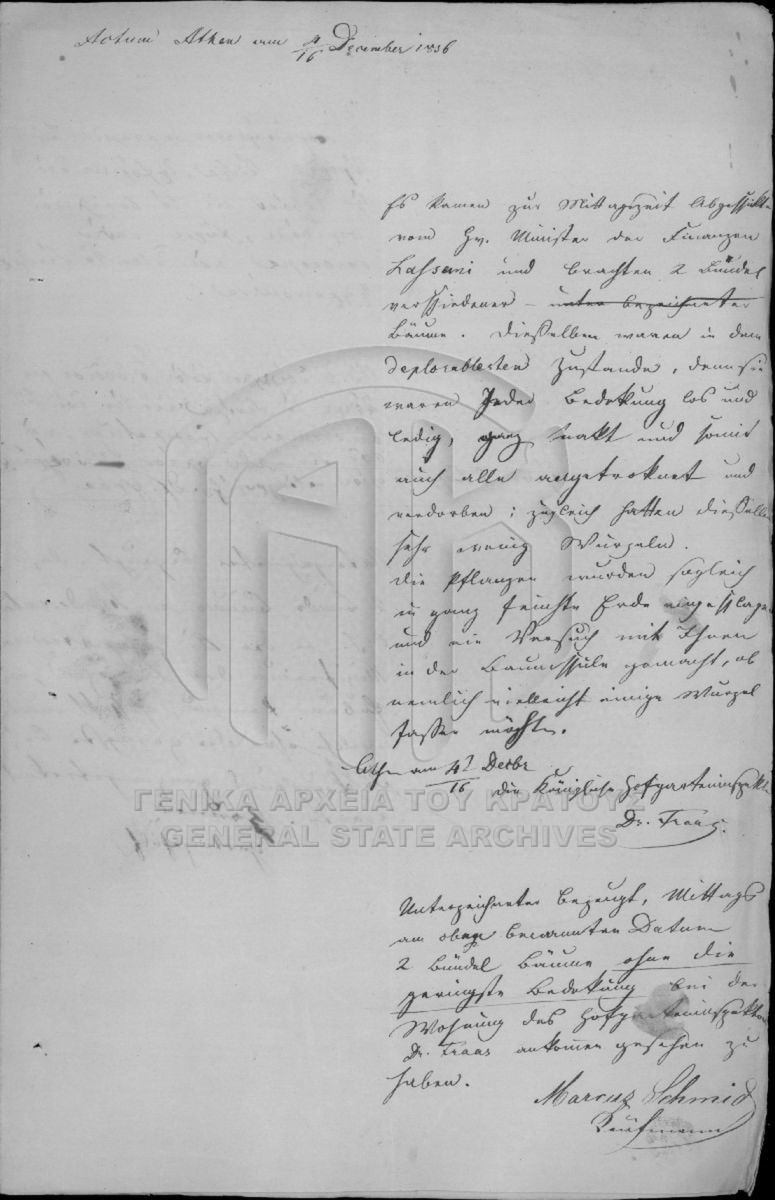 Actum Athen am 4/16 December 1836
Es kamen zur Mittagszeit Abgeschikte
vom Hr. Minister der Finanzen
Lassani und brachten 2 Bündel
verschiedener – unter bezeichneter
Bäume. Dieselben waren in dem
deplorablesten Zustande, denn sie
waren jeder Bedekung los und
ledig, ganz nakt und somit
auch alle ausgetroknet und
verdorben; zugleich hatten dieselben
sehr wenig Wurzeln.
Die Pflanzen wurden sogleich
in ganz feuchte Erde eingeschlagen
und ein Versuch mit Ihnen
in der Baumschule gemacht, ob
nemlich vielleicht einige Wurzel
fassen möchten.
Athen am 4/16 Decbr
die Königliche Hofgarteninspektion
Dr. Fraas.
Unterzeichneter bezeugt, Mittags
am oben benannten Datum
2 Bündel Bäume ohne die
geringste Bedekung bei der
Wohnung des Hofgarteninspektors
Dr. Fraas ankommen gesehen zu
haben.
Marcus Schmid
Kaufmann
ΓΕΝΙΚΑ ΑΡΧΕΙΑ ΤΟΥ ΚΡΑΤΟΥΣ
GENERAL STATE ARCHIVES